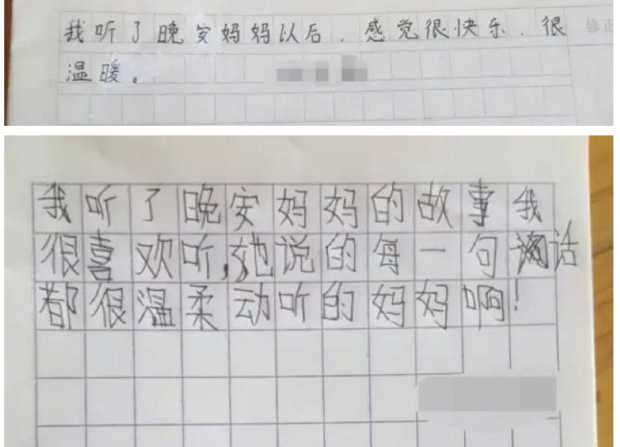 我听了晚安妈妈以后，感觉很快乐，很
温暖。
修正
我听了晚安妈妈的故事我
很喜欢听，她说的每一句话
都很温柔动听的妈妈啊！